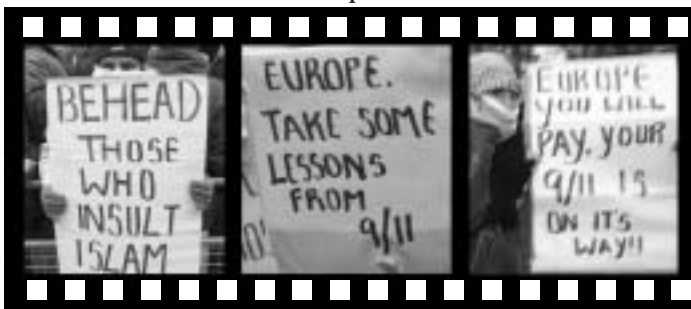 BEHEAD
THOSE
WHO
INSULT
ISLAM
EUROPE.
TAKE SOME
LESSONS
FROM
9/11
EUROPE
YOU WILL
PAY. YOUR
9/11 IS
ON ITS
WAY!!